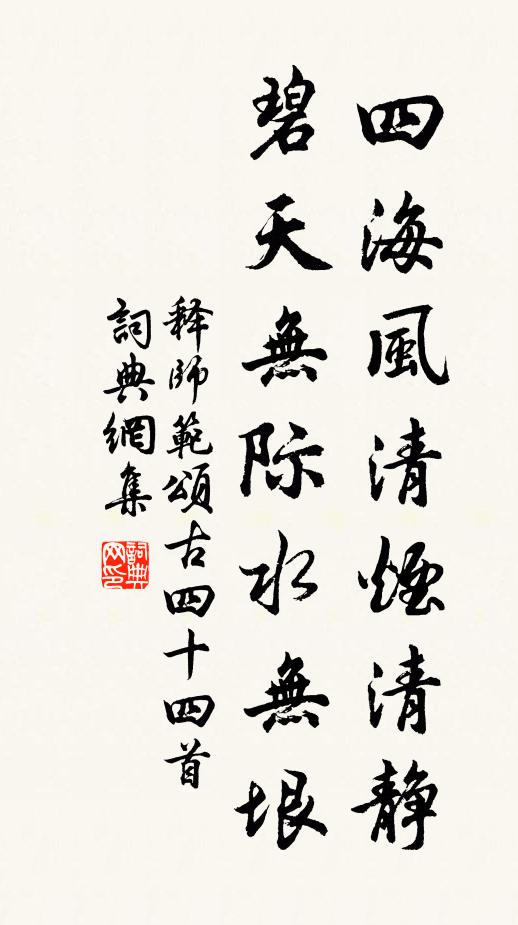 四海風清煙清静
碧天無际水無垠
释師範頌古四十四首
詞典網集
詞典网印